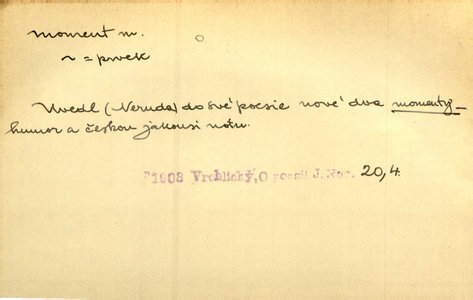 moment m.
~ = prvek
Uvedl (Neruda) do své poesie nové dva momenty -
humor a českou jakousi notu.
1908 Vrchlický, O poesii J. Ner. 20,4.